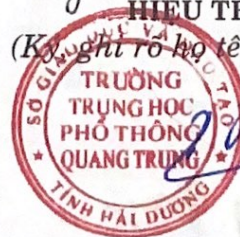 HIỆU TR
(Ký, ghi rõ họ tê
SỞ GIÁO DỤC VÀ ĐÀO TẠO
TRƯỜNG
TRUNG HỌC
PHỔ THÔNG
QUANG TRUNG
TỈNH HẢI DƯƠNG